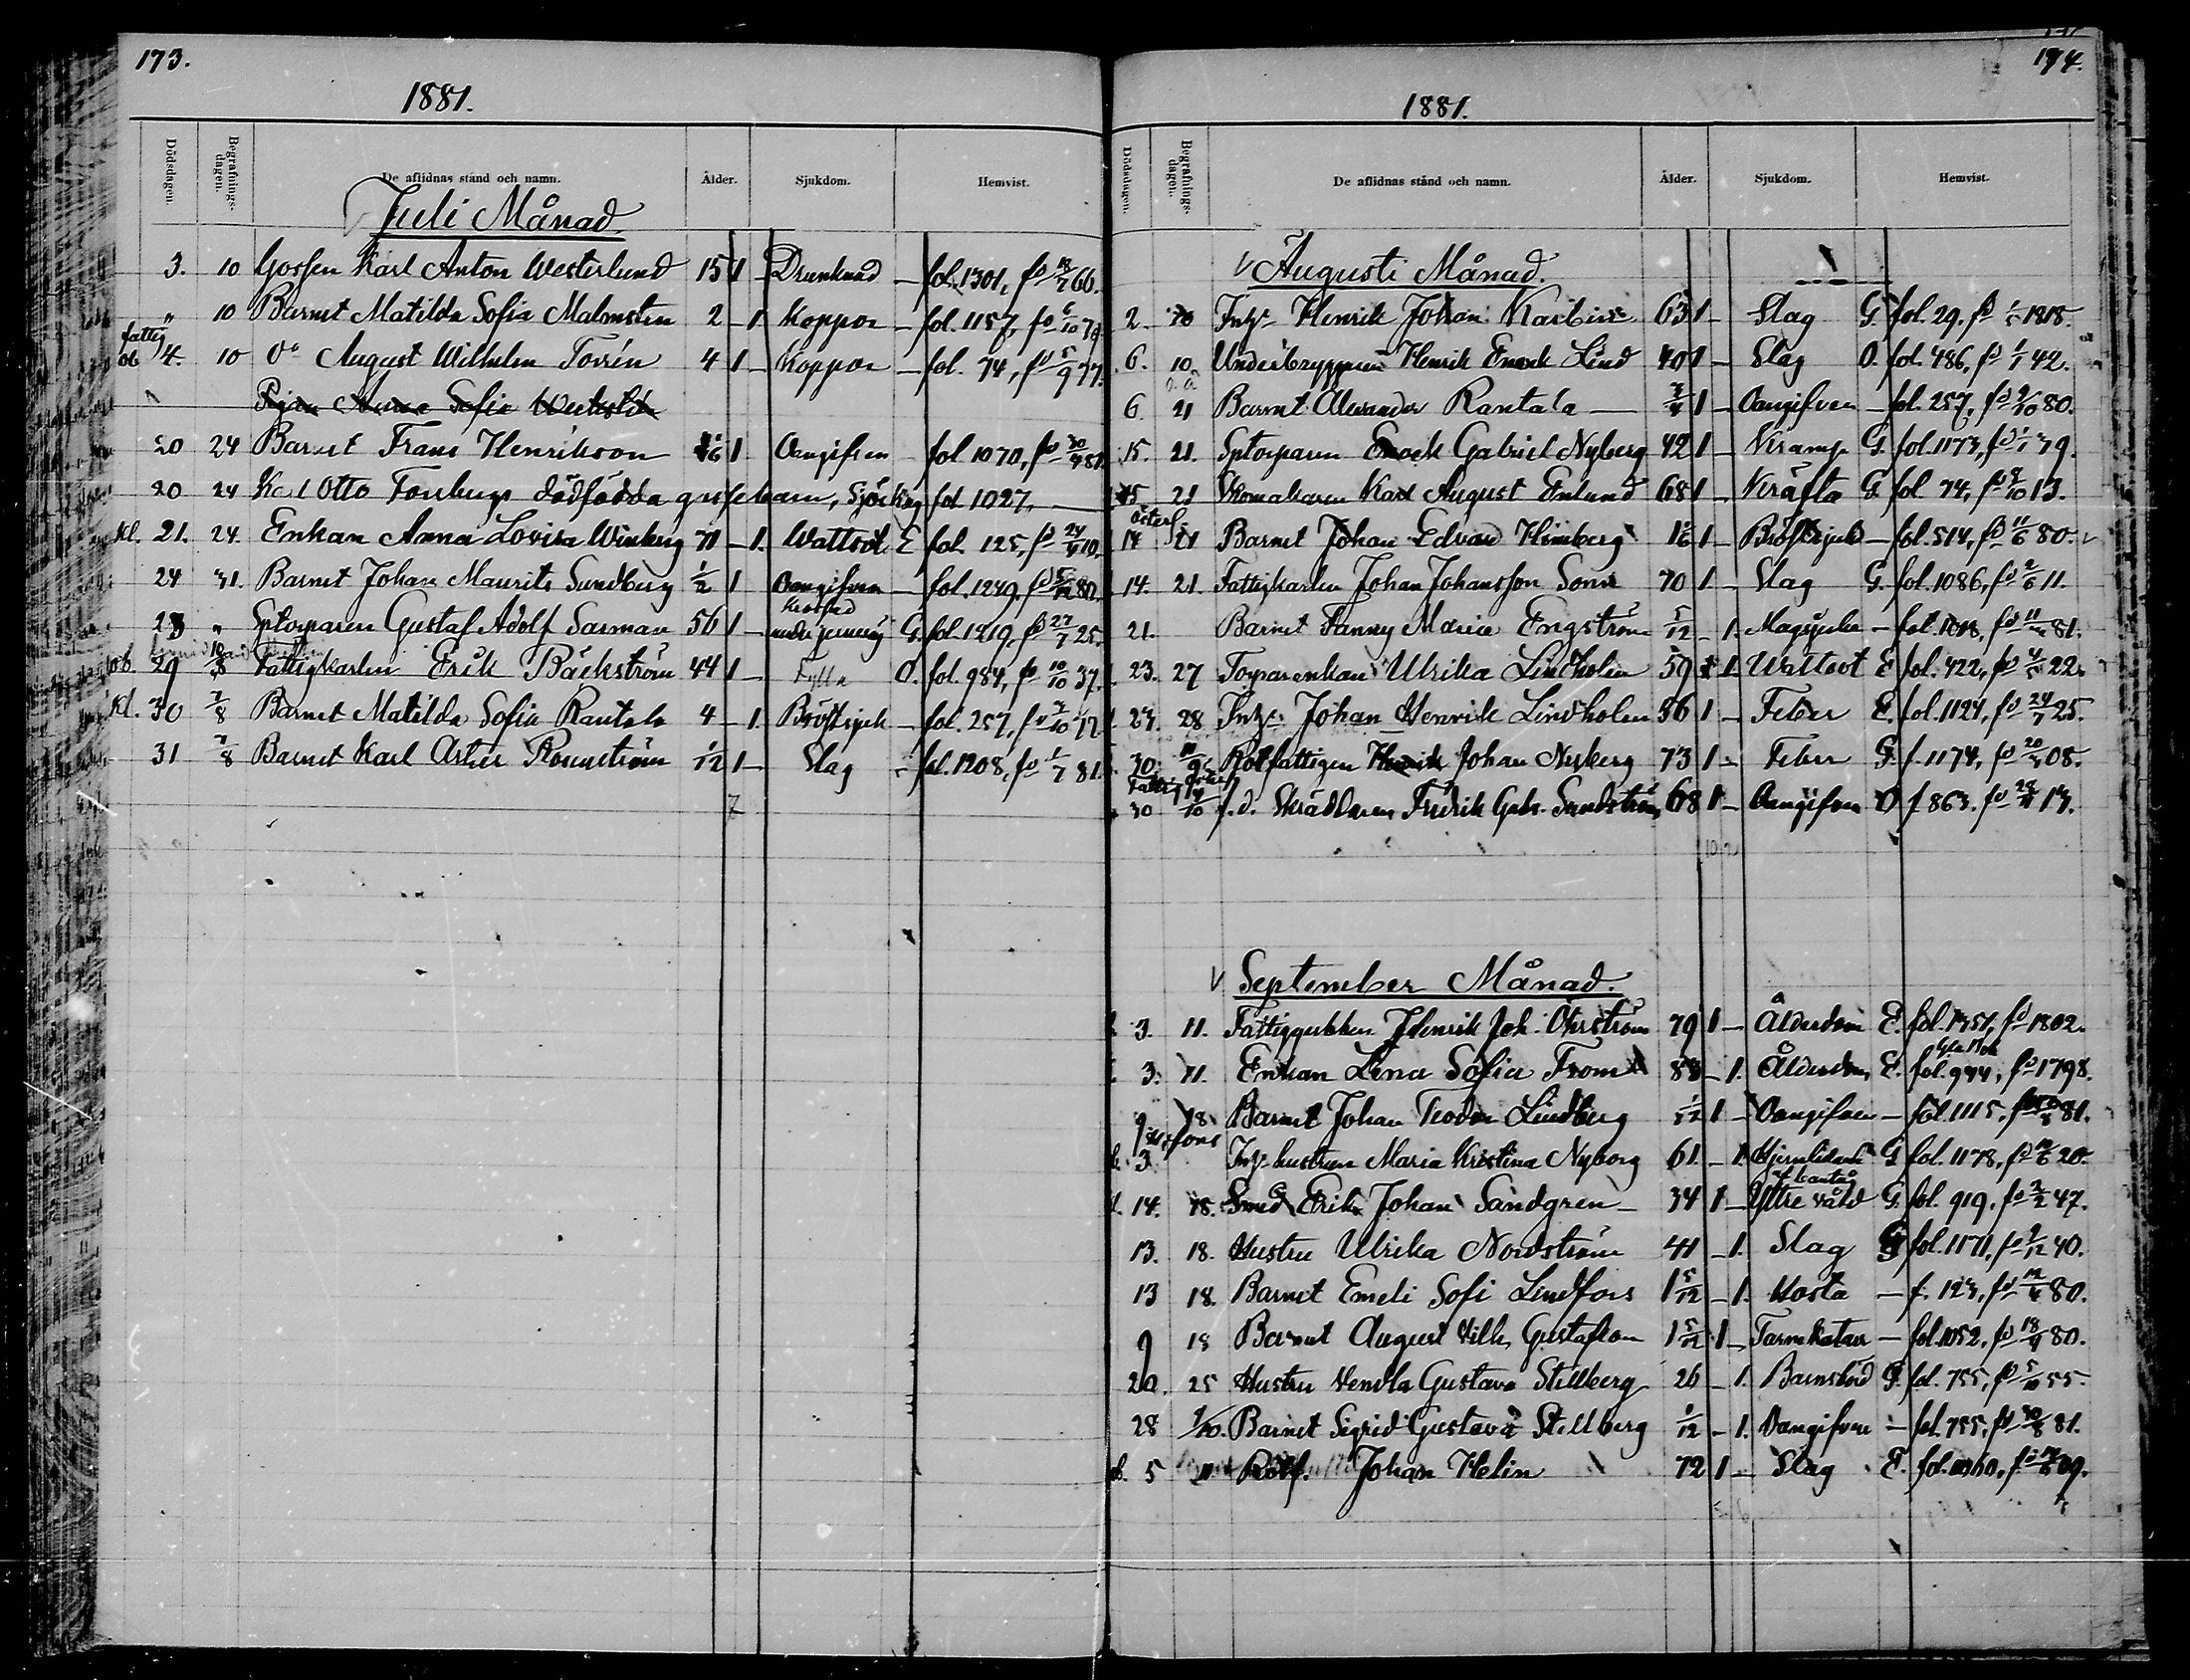 173.
1881.
Dödsdagen. Begrafnings-dagen. De aflidnas stånd och namn. Ålder. Sjukdom. Hemvist.
Juli Månad
3. 10 Gossen Karl Anton Westerlund 15 1 - Drunknad - fol. 1301, fd 18/7 66.
" 10 Barnet Matilda Sofia Malmsten 2 - 1. Koppor - fol. 1157, fd 6/10 78
fattig
ob 4. 10 Do August Wilhelm Torrén 4 1 - Koppor - fol. 74, fd 5/9 77.
Pigan Anna Sofia
20 24 Barnet Frans Henrikson 1/6 1 Oangifven - fol 1070, fd 30/4 81
20 24 Karl Otto Forsbergs dödfödda gossebarn, fol. 1027,
kl. 21. 24. Enkan Anna Lovisa Winberg 71 - 1. Wattsot E fol. 125, fd 24/4 10,
24 31. Barnet Johan Maurits Sundberg 1/2 1 Oangifven - fol. 1249, fd 80.
krossad
28 " Sptorparen Gustaf Adolf Sarman 56 1 - under G. fol. 1219, fd 27/7 25.
ob. 29 10/8 Fattigkarlen Erik Bäckström 44 1 - Fylla O. fol. 984, fd 10/10 37.
kl. 30 7/8 Barnet Matilda Sofia Rantala 4 - 1. Bröstsjuk - fol. 257, fd 7/10 77
31 7/8 Barnet Karl Artur Rosenström 1/12 1 - Slag - fol. 1208, fd 1/7 81.
7
174.
1881.
Dödsdagen. Begrafnings-dagen. De aflidnas stånd och namn. Ålder. Sjukdom. Hemvist.
Augusti Månad.
2. 10 Inhs. Henrik Johan Karbin 63 1 - Slag G. fol. 29, fd 1818.
6. 10 Henrik Enok Lind 40 1 - Slag O. fol. 486, fd 1/1 42.
6 21 Barnet Alexander Rantala - 3/4 1 - Oangifven - fol. 257, fd 9/10 80.
15. 21. Sptorparen Enock Gabriel Nyberg 42 1 - Kramp G. fol. 1173, fd 39.
15. 21 Skomakaren Karl August Enlund 68 1 - Kräfta G. fol. 74, fd 8/10 13.
14 21 Barnet Johan Edvard Himberg 1 1/6 1 - Bröstsjuk - fol. 514, fd 11/6 80.
14. 21. Fattigkarlen Johan Johansson Sonn 70 1 - Slag G. fol. 1086, fd 2/6 11.
21. Barnet Fanny Maria Engström 5/12 - 1. Magsjuka - fol. 1018, fd 81.
23. 27 Torparenkan Ulrika Lindholm 59 - 1. Wattsot E fol. 422, fd 22.
27. 28 Inhs. Johan Henrik Lindholm 56 1 - Feber E. fol. 1124, fd 24/7 25.
30. 11/9 Rotfattigen Henrik Johan Nyberg 73 1 - Feber G. f. 1174, fd 20 08.
30 9/10 f.d. Skräddaren Fredrik Gabr. Sundström 68 1 - Oangifven O f 863. fd 17.
September Månad.
3. 11. Fattiggubben Henrik Joh. Öhrström 79 1 - Ålderdom E. fol. 1351, fd 1802.
3. 11. Enkan Lena Sofia From 83 - 1. Ålderdom E. fol. 944, fd 1798.
9 18 Barnet Johan Teodor Lindberg 1/12 1 - Oangifven - fol. 1115, fd 81.
3. Inhs hustrun Maria Kristina Nyborg 61. - 1. G fol. 1178, fd 20.
14. 18. Smed Erik Johan Sandgren - 34 1 - Yttre våld G. fol. 919, fd 2/2 47.
13. 18. Hustru Ulrika Nordström 41 - 1. Slag G fol. 1171, fd 9/12 40.
13 18. Barnet Emeli Sofi Lindfors 1 5/12 - 1. Hosta - f. 123, fd 80.
9 18 Barnet August Vilh. Gustafson 1 5/12 1 - Tarmkatarr - fol. 1052, fd 18/4 80.
20. 25 Hustru Vendla Gustava Stillberg 26 - 1. Barnsbörd G. fol. 755, fd 5/10 55.
28 9/10. Barnet Sigrid Gustava Stillberg 1/12 - 1. Oangifven - fol. 755, fd 30/8 81.
ob. 5 11 Rotf. Johan Helin 72 1 - Slag E. fol. 1060, fd 09.